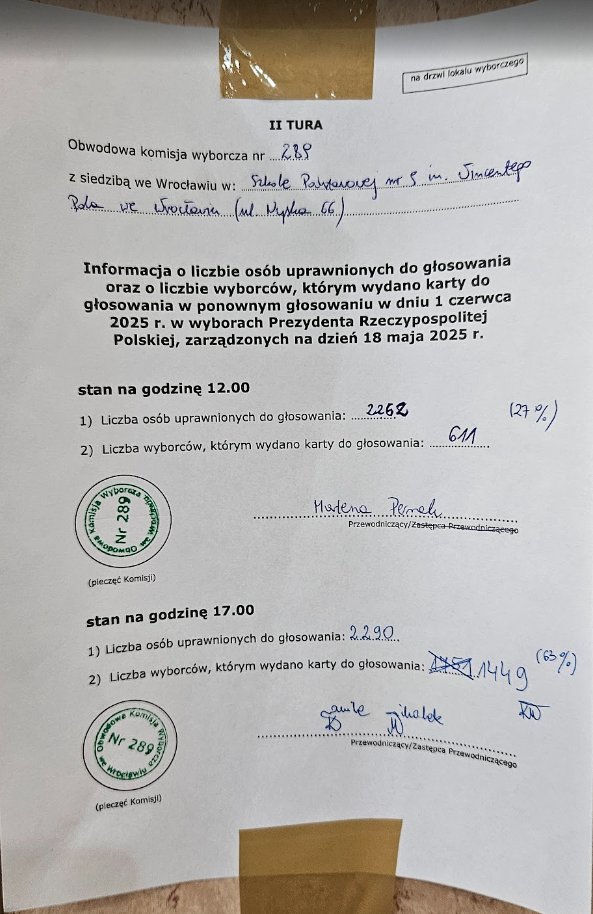 na drzwi lokalu wyborczego
II TURA
Obwodowa komisja wyborcza nr 289
z siedzibą we Wrocławiu w: Szkole Podstawowej nr 9 im. Wincentego
Pola we Wrocławiu (ul. Nyska 66)
Informacja o liczbie osób uprawnionych do głosowania
oraz o liczbie wyborców, którym wydano karty do
głosowania w ponownym głosowaniu w dniu 1 czerwca
2025 r. w wyborach Prezydenta Rzeczypospolitej
Polskiej, zarządzonych na dzień 18 maja 2025 r.
stan na godzinę 12.00
1) Liczba osób uprawnionych do głosowania: 2262 (27%)
2) Liczba wyborców, którym wydano karty do głosowania: 611
Obwodowa Komisja Wyborcza we Wrocławiu
Nr 289
Przewodniczący/Zastępca Przewodniczącego
(pieczęć Komisji)
stan na godzinę 17.00
1) Liczba osób uprawnionych do głosowania: 2290
2) Liczba wyborców, którym wydano karty do głosowania: 1449 (63%)
Obwodowa Komisja Wyborcza we Wrocławiu
Nr 289
Przewodniczący/Zastępca Przewodniczącego
(pieczęć Komisji)